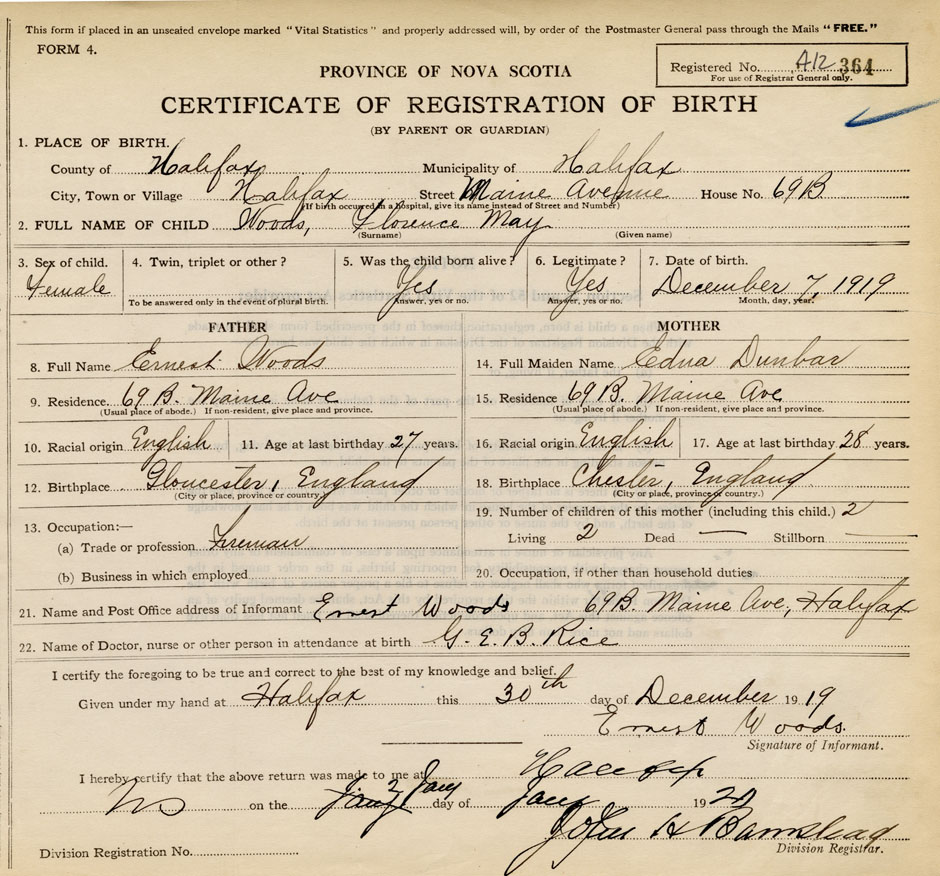 This form if placed in an unsealed envelope marked "Vital Statistics" and properly addressed will, by order of the Postmaster General pass through the Mails "FREE."
FORM 4.
Registered No. A12 364
For use of Registrar General only.
PROVINCE OF NOVA SCOTIA
CERTIFICATE OF REGISTRATION OF BIRTH
(BY PARENT OR GUARDIAN)
1. PLACE OF BIRTH.
County of Halifax Municipality of Halifax
City, Town or Village Halifax Street Maine Avenue House No. 69B
(If birth occurred in a hospital, give its name instead of Street and Number)
2. FULL NAME OF CHILD Woods, Florence May
(Surname) (Given name)
3. Sex of child. 4. Twin, triplet or other? 5. Was the child born alive? 6. Legitimate? 7. Date of birth.
Female Yes Yes December 7, 1919
To be answered only in the event of plural birth. Answer, yes or no. Answer, yes or no. Month, day, year.
FATHER MOTHER
8. Full Name Ernest Woods 14. Full Maiden Name Edna Dunbar
9. Residence 69B. Maine Ave 15. Residence 69B. Maine Ave
(Usual place of abode.) If non-resident, give place and province. (Usual place of abode.) If non-resident, give place and province.
10. Racial origin English 11. Age at last birthday 27 years. 16. Racial origin English 17. Age at last birthday 28 years.
12. Birthplace Gloucester, England 18. Birthplace Chester, England
(City or place, province or country.) (City or place, province or country.)
13. Occupation:— 19. Number of children of this mother (including this child.) 2
(a) Trade or profession Fireman Living 2 Dead — Stillborn —
(b) Business in which employed 20. Occupation, if other than household duties
21. Name and Post Office address of Informant Ernest Woods 69B. Maine Ave, Halifax
22. Name of Doctor, nurse or other person in attendance at birth G. E. B. Rice
I certify the foregoing to be true and correct to the best of my knowledge and belief.
Given under my hand at Halifax this 30th day of December 1919
Ernest Woods.
Signature of Informant.
I hereby certify that the above return was made to me at Halifax
NS on the 2 day of Jany 1920
John H Barnstead
Division Registrar.
Division Registration No.